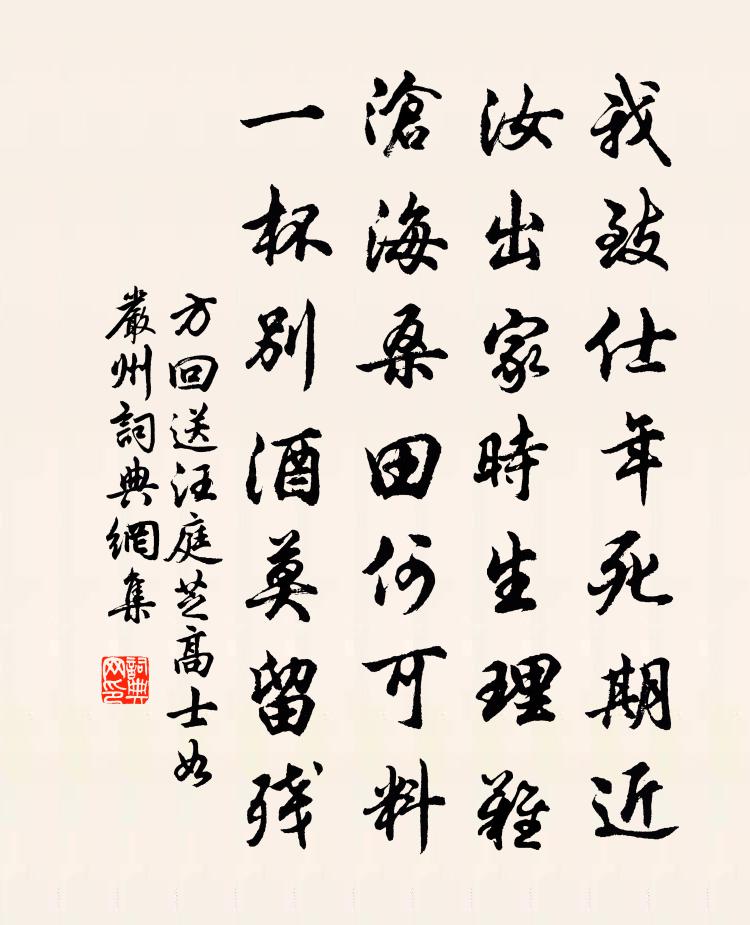 我致仕年死期近
汝出家時生理難
滄海桑田何可料
一杯別酒莫留殘
方回送汪庭芝高士如
嚴州詞典網集
詞典網印